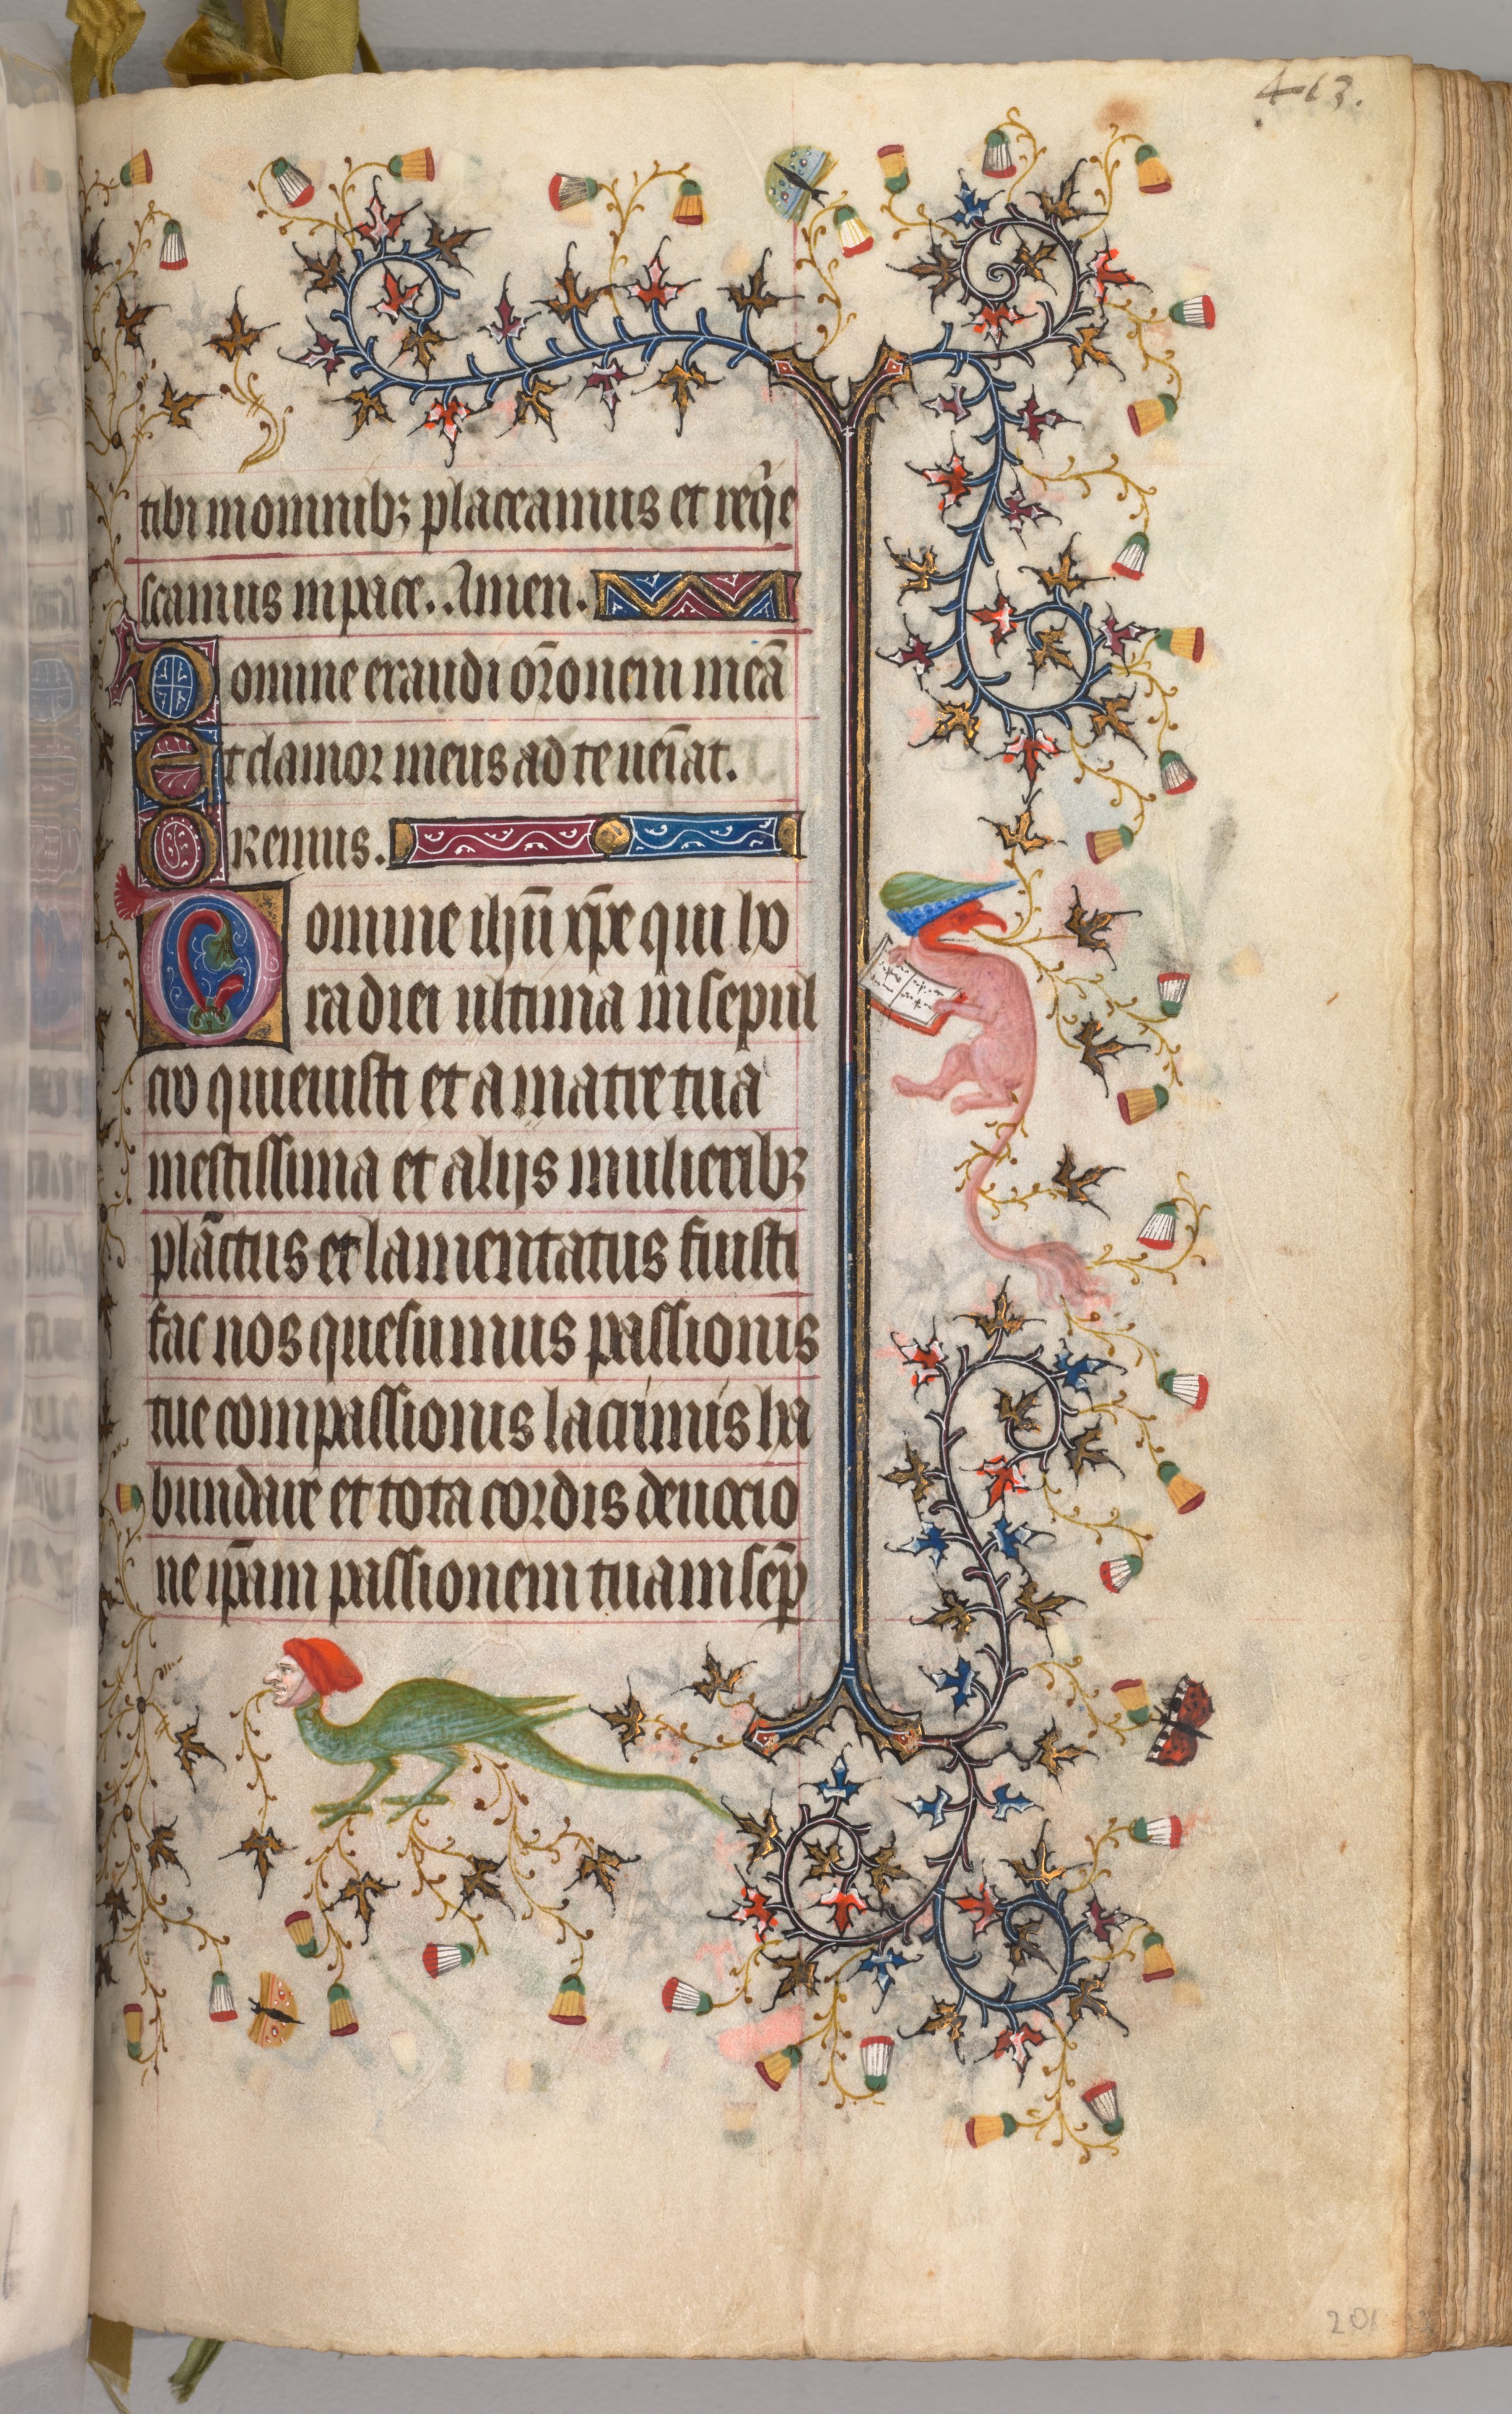 413.
tibi in omnibꝫ placeamus et req̄e
scamus in pace. Amen.
Domine exaudi or̄onem meā
Et clamor meus ad te ueīat.
Oremus.
Domine ihū xp̄e qui ho
ra diei ultima in sepul
cro quieuisti et a matre tua
mestissima et alijs mulieribꝫ
plāctus et lamentatus fuisti
fac nos quesumus passionis
tue compassionis lacrimis ha
bundare et tota cordis deuocio
ne ip̄am passionem tuam sep̄
201